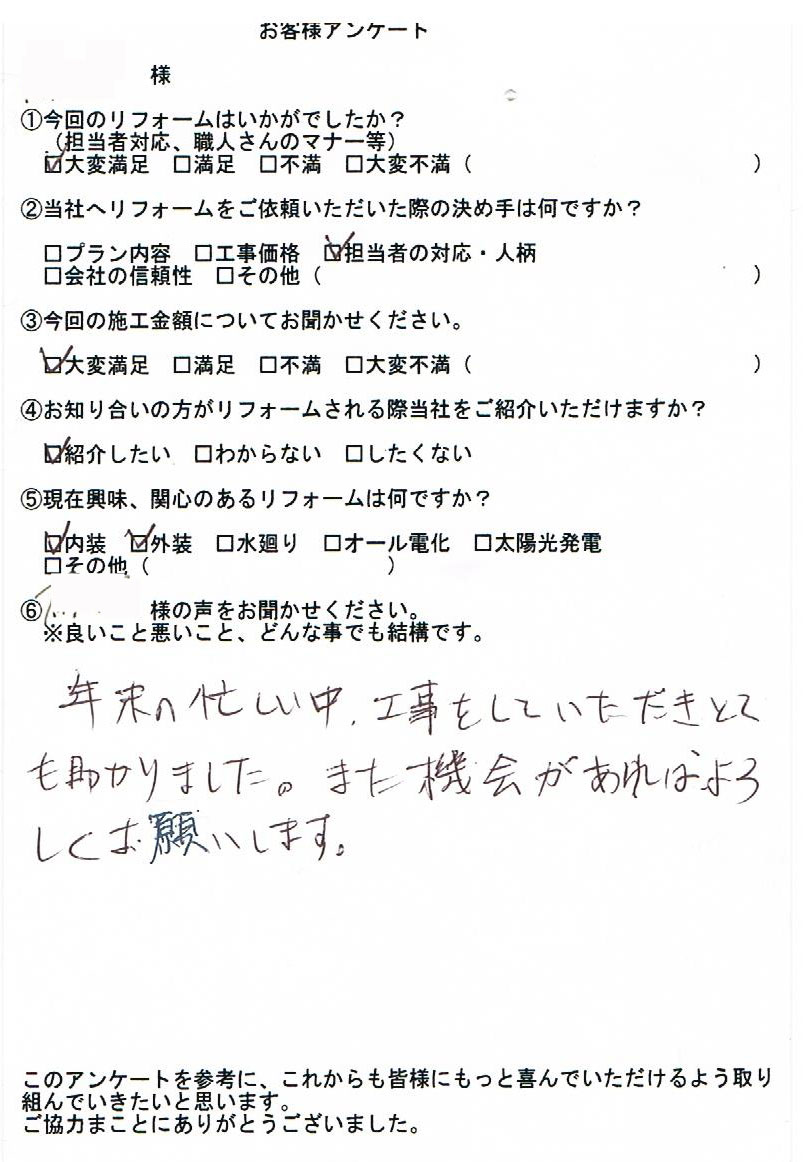 お客様アンケート
様
①今回のリフォームはいかがでしたか？
（担当者対応、職人さんのマナー等）
☑大変満足　□満足　□不満　□大変不満（　　　　　　　　　　　　　）
②当社へリフォームをご依頼いただいた際の決め手は何ですか？
□プラン内容　□工事価格　☑担当者の対応・人柄
□会社の信頼性　□その他（　　　　　　　　　　　　　　　　　　　　）
③今回の施工金額についてお聞かせください。
☑大変満足　□満足　□不満　□大変不満（　　　　　　　　　　　　　）
④お知り合いの方がリフォームされる際当社をご紹介いただけますか？
☑紹介したい　□わからない　□したくない
⑤現在興味、関心のあるリフォームは何ですか？
☑内装　☑外装　□水廻り　□オール電化　□太陽光発電
□その他（　　　　　　　　　　　）
⑥　　　　　様の声をお聞かせください。
※良いこと悪いこと、どんな事でも結構です。
年末の忙しい中、工事をしていただきとて
も助かりました。また機会があればよろ
しくお願いします。
このアンケートを参考に、これからも皆様にもっと喜んでいただけるよう取り
組んでいきたいと思います。
ご協力まことにありがとうございました。